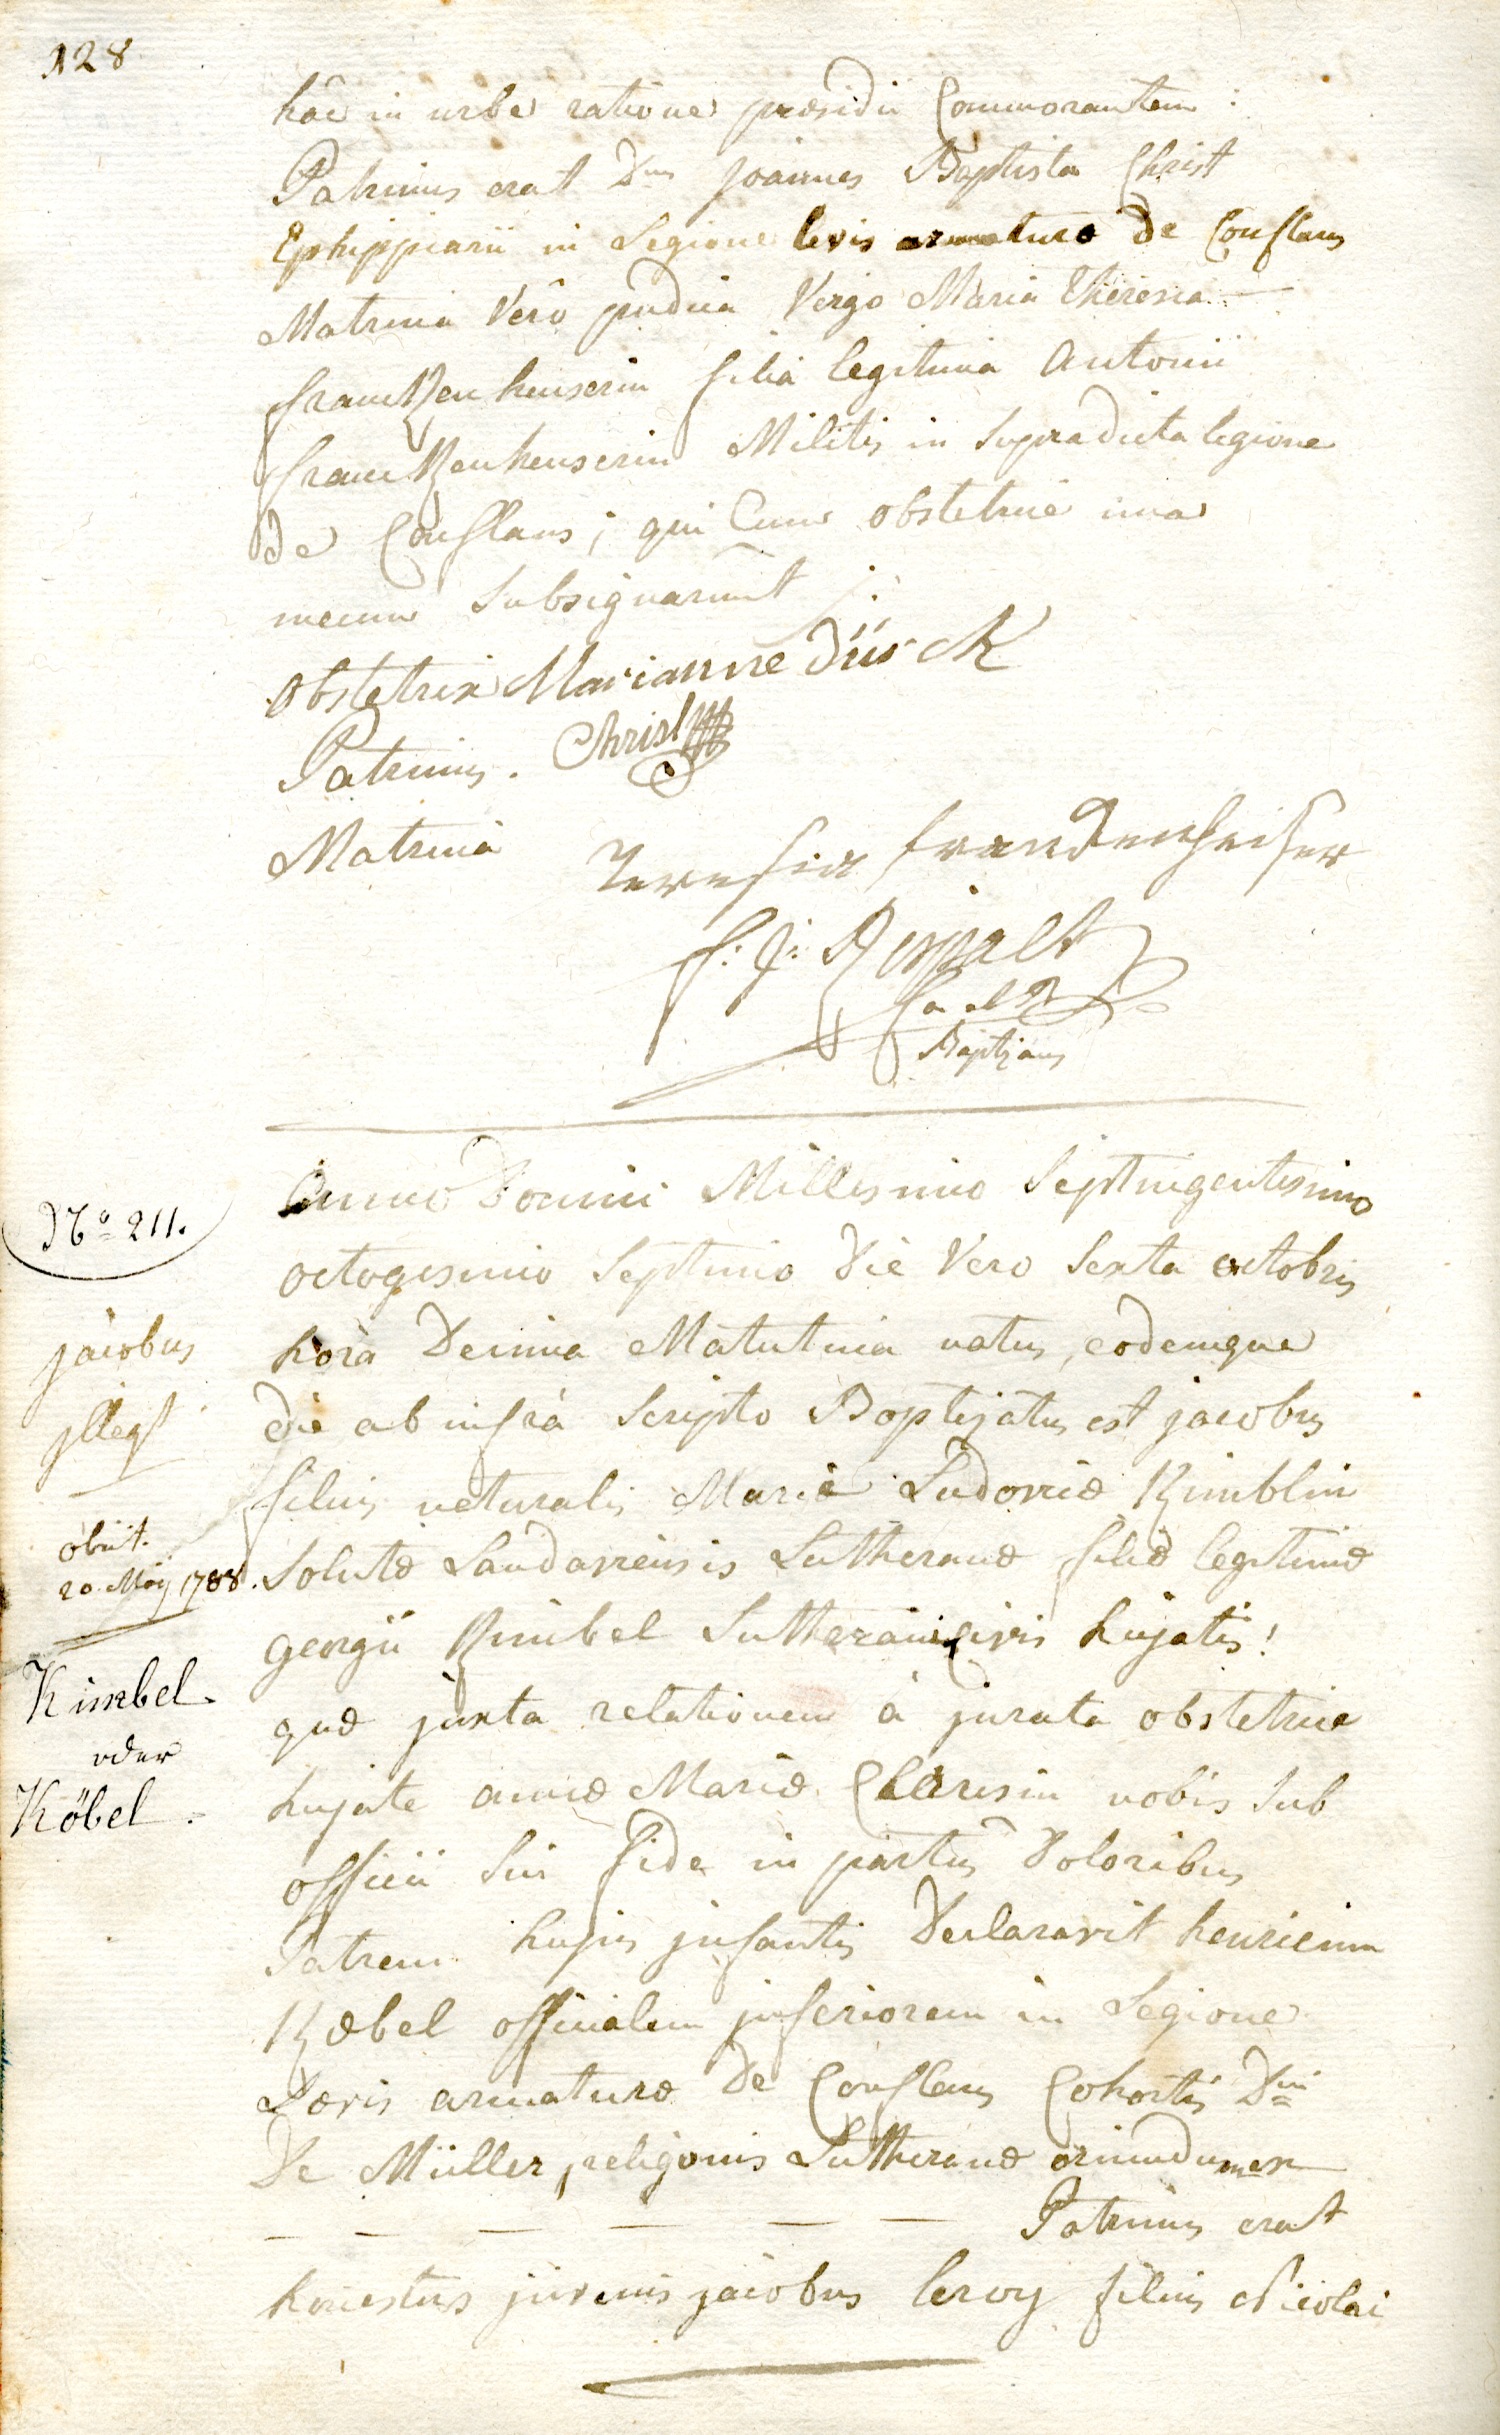 128
hâc in urbe ratione præsidii Commorantem :
Patrinus erat Dnus joannes Baptista Christ
Ephippiarii in Legione levis armaturæ De Conflans
Matrina Vero pudica Virgo Maria Theresia
franckenheuserin filia legitima Antonii
franckenheuserin Militis in Supradicta legione
de Conflans ; qui Cum obstetrice una
mecum Subsignarunt :
obstetrix Marianne dürck
Patrinus . Christ
Matrina Teresia franckenheiser
Baptizans
Anno Domini Millesimo Septingentesimo
No 211.
octogesimo Septimo Die Vero Sexta octobris
jacobus
hora Decima Matutina natus, eodemque
die ab infrà Scripto Baptizatus est jacobus
jlleg
filius naturalis Mariæ Ludovicæ Kimblin
obiit.
20. Maij 1788.
Solutæ Landaviensis Lutheranæ filiæ legitimæ
georgii Kimbel Lutherani Civis hujatis !
Kimbel
oder
Köbel.
quæ juxta relationem à jurata obstetrice
hujate annæ Mariæ Clarisin nobis Sub
officii Sui fide in partus Doloribus
Patrem hujus jnfantis Declaravit henricum
Kæbel officialem jnferiorem in Legione
Lævis armaturæ De Conflans Cohortis Dni
De Müller, religionis Lutheranæ oriundum ex
— — — — — — Patrinus erat
honestus juvenis jacobus leroy filius Nicolai